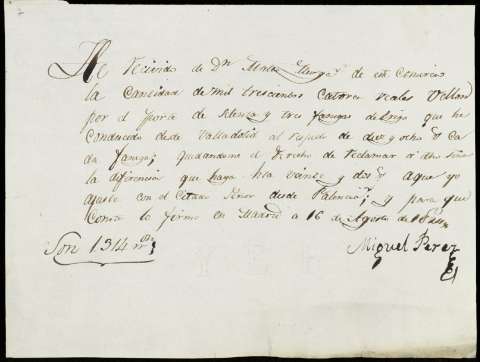 He recivido de Dn de este Comercio
la Cantidad de mil trescientos catorce reales Vellon
por el porte de setenza y tres fanegas de trigo que he
Conducido desde Valladolid al respeto de diez y ocho rs Ca
da fanega; quedandome el derecho de reclamar a dho Señor
la diferencia que haya hta veinte y dos rs a que yo
ajuste con el Citado Señor desde Palencia; y para que
Conste lo firmo en Madrid a 16 de Agosto de
Son 1314 rs
Miguel Perez